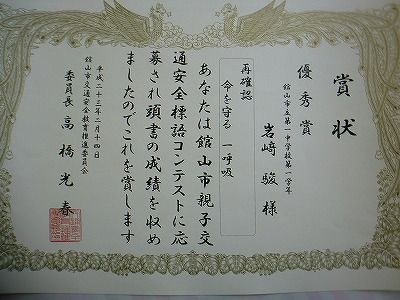 賞状
優秀賞
館山市立第一中学校第一学年
岩﨑 駿 様
再確認
命を守る 一呼吸
あなたは館山市親子交
通安全標語コンテストに応
募され頭書の成績を収め
ましたのでこれを賞します
平成二十三年一月十四日
館山市交通安全教育推進委員会
委員長 高橋光春